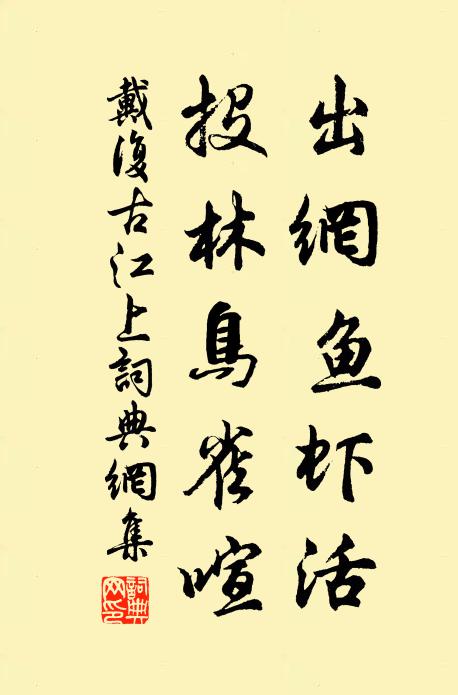 出網魚虾活
投林鳥雀喧
戴復古江上詞典網集
詞典
網印